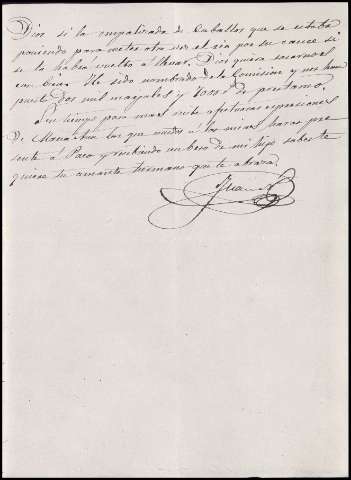 Dios si la empalizada de Caballos que se estaba
poniendo para meter otra vez el río por su cauce si
se la había vuelto á llevar. Dios quiera sacarnos
con bien. He sido nombrado de la Comision y nos han
puesto dos mil reales y de prestamo.
Sin tiempo para mas recibe afectuosas espresiones
de que unidos á los mias haras pre
sente á Paco y recibiendo un beso de mi hijo sabes te
quiere tu amante hermano que te abraza
Juan